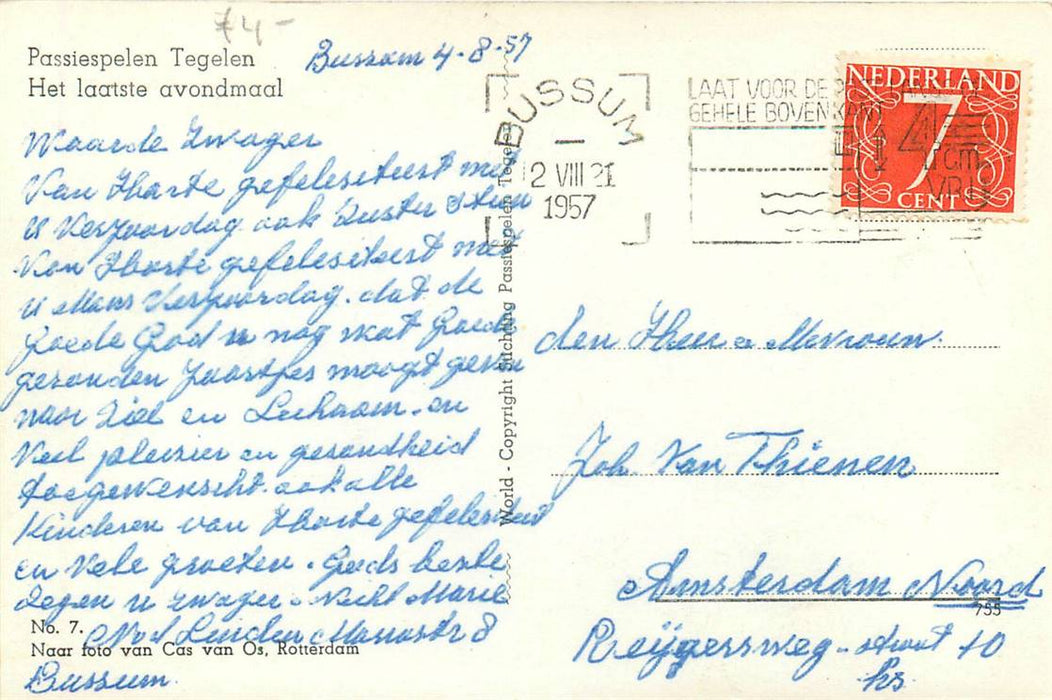 74-
Passiespelen Tegelen
Het laatste avondmaal
Bussum 4-8-57
Waarde Zwager
Van Harte gefelesiteert met
U Verjaardag ook Zuster
Van Harte gefelesiteert met
U Mans Verjaardag. dat de
Goede God u nog wat Goede
gezonden Jaartjes moogt geven
naar Ziel en Lichaam. en
Veel plezier en gezondheid
toegewenscht. ook alle
Kinderen van Harte gefelesiteert
en Vele groeten. Gods beste
Zegen u zwager. Nicht Marie
No. 7.
Naar foto van Cas van Os, Rotterdam
Bussum
World - Copyright Stichting Passiespelen Tegelen
BUSSUM
2 VIII 21
1957
LAAT VOOR DE
GEHELE BOVENKANT
4 cm
VRIJ
NEDERLAND
7
CENT
den Heer & Mevrouw.
Joh. Van Thienen
Amsterdam Noord
755
Reijgersweg - straat 10
hs.